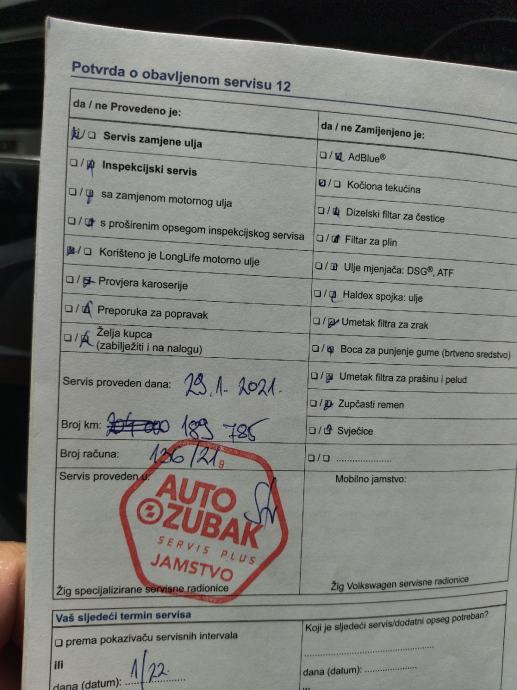 Potvrda o obavljenom servisu 12
da / ne Provedeno je:
☒/☐ Servis zamjene ulja
☐/☒ Inspekcijski servis
☐/☒ sa zamjenom motornog ulja
☐/☒ s proširenim opsegom inspekcijskog servisa
☒/☐ Korišteno je LongLife motorno ulje
☐/☒ Provjera karoserije
☐/☒ Preporuka za popravak
☐/☒ Želja kupca
(zabilježiti i na nalogu)
Servis proveden dana: 29.1. 2021.
Broj km: 189 785
Broj računa: 136/21
Servis proveden u:
AUTO
ZUBAK
SERVIS PLUS
JAMSTVO
Žig specijalizirane servisne radionice
da / ne Zamijenjeno je:
☐/☒ AdBlue®
☒/☐ Kočiona tekućina
☐/☒ Dizelski filtar za čestice
☐/☒ Filtar za plin
☐/☒ Ulje mjenjača: DSG®, ATF
☐/☒ Haldex spojka: ulje
☐/☒ Umetak filtra za zrak
☐/☒ Boca za punjenje gume (brtveno sredstvo)
☐/☒ Umetak filtra za prašinu i pelud
☐/☒ Zupčasti remen
☐/☒ Svjećice
☐/☐ ....................
Mobilno jamstvo:
Žig Volkswagen servisne radionice
Vaš sljedeći termin servisa
☐ prema pokazivaču servisnih intervala
ili
dana (datum): 1/22
Koji je sljedeći servis/dodatni opseg potreban?
dana (datum): ....................